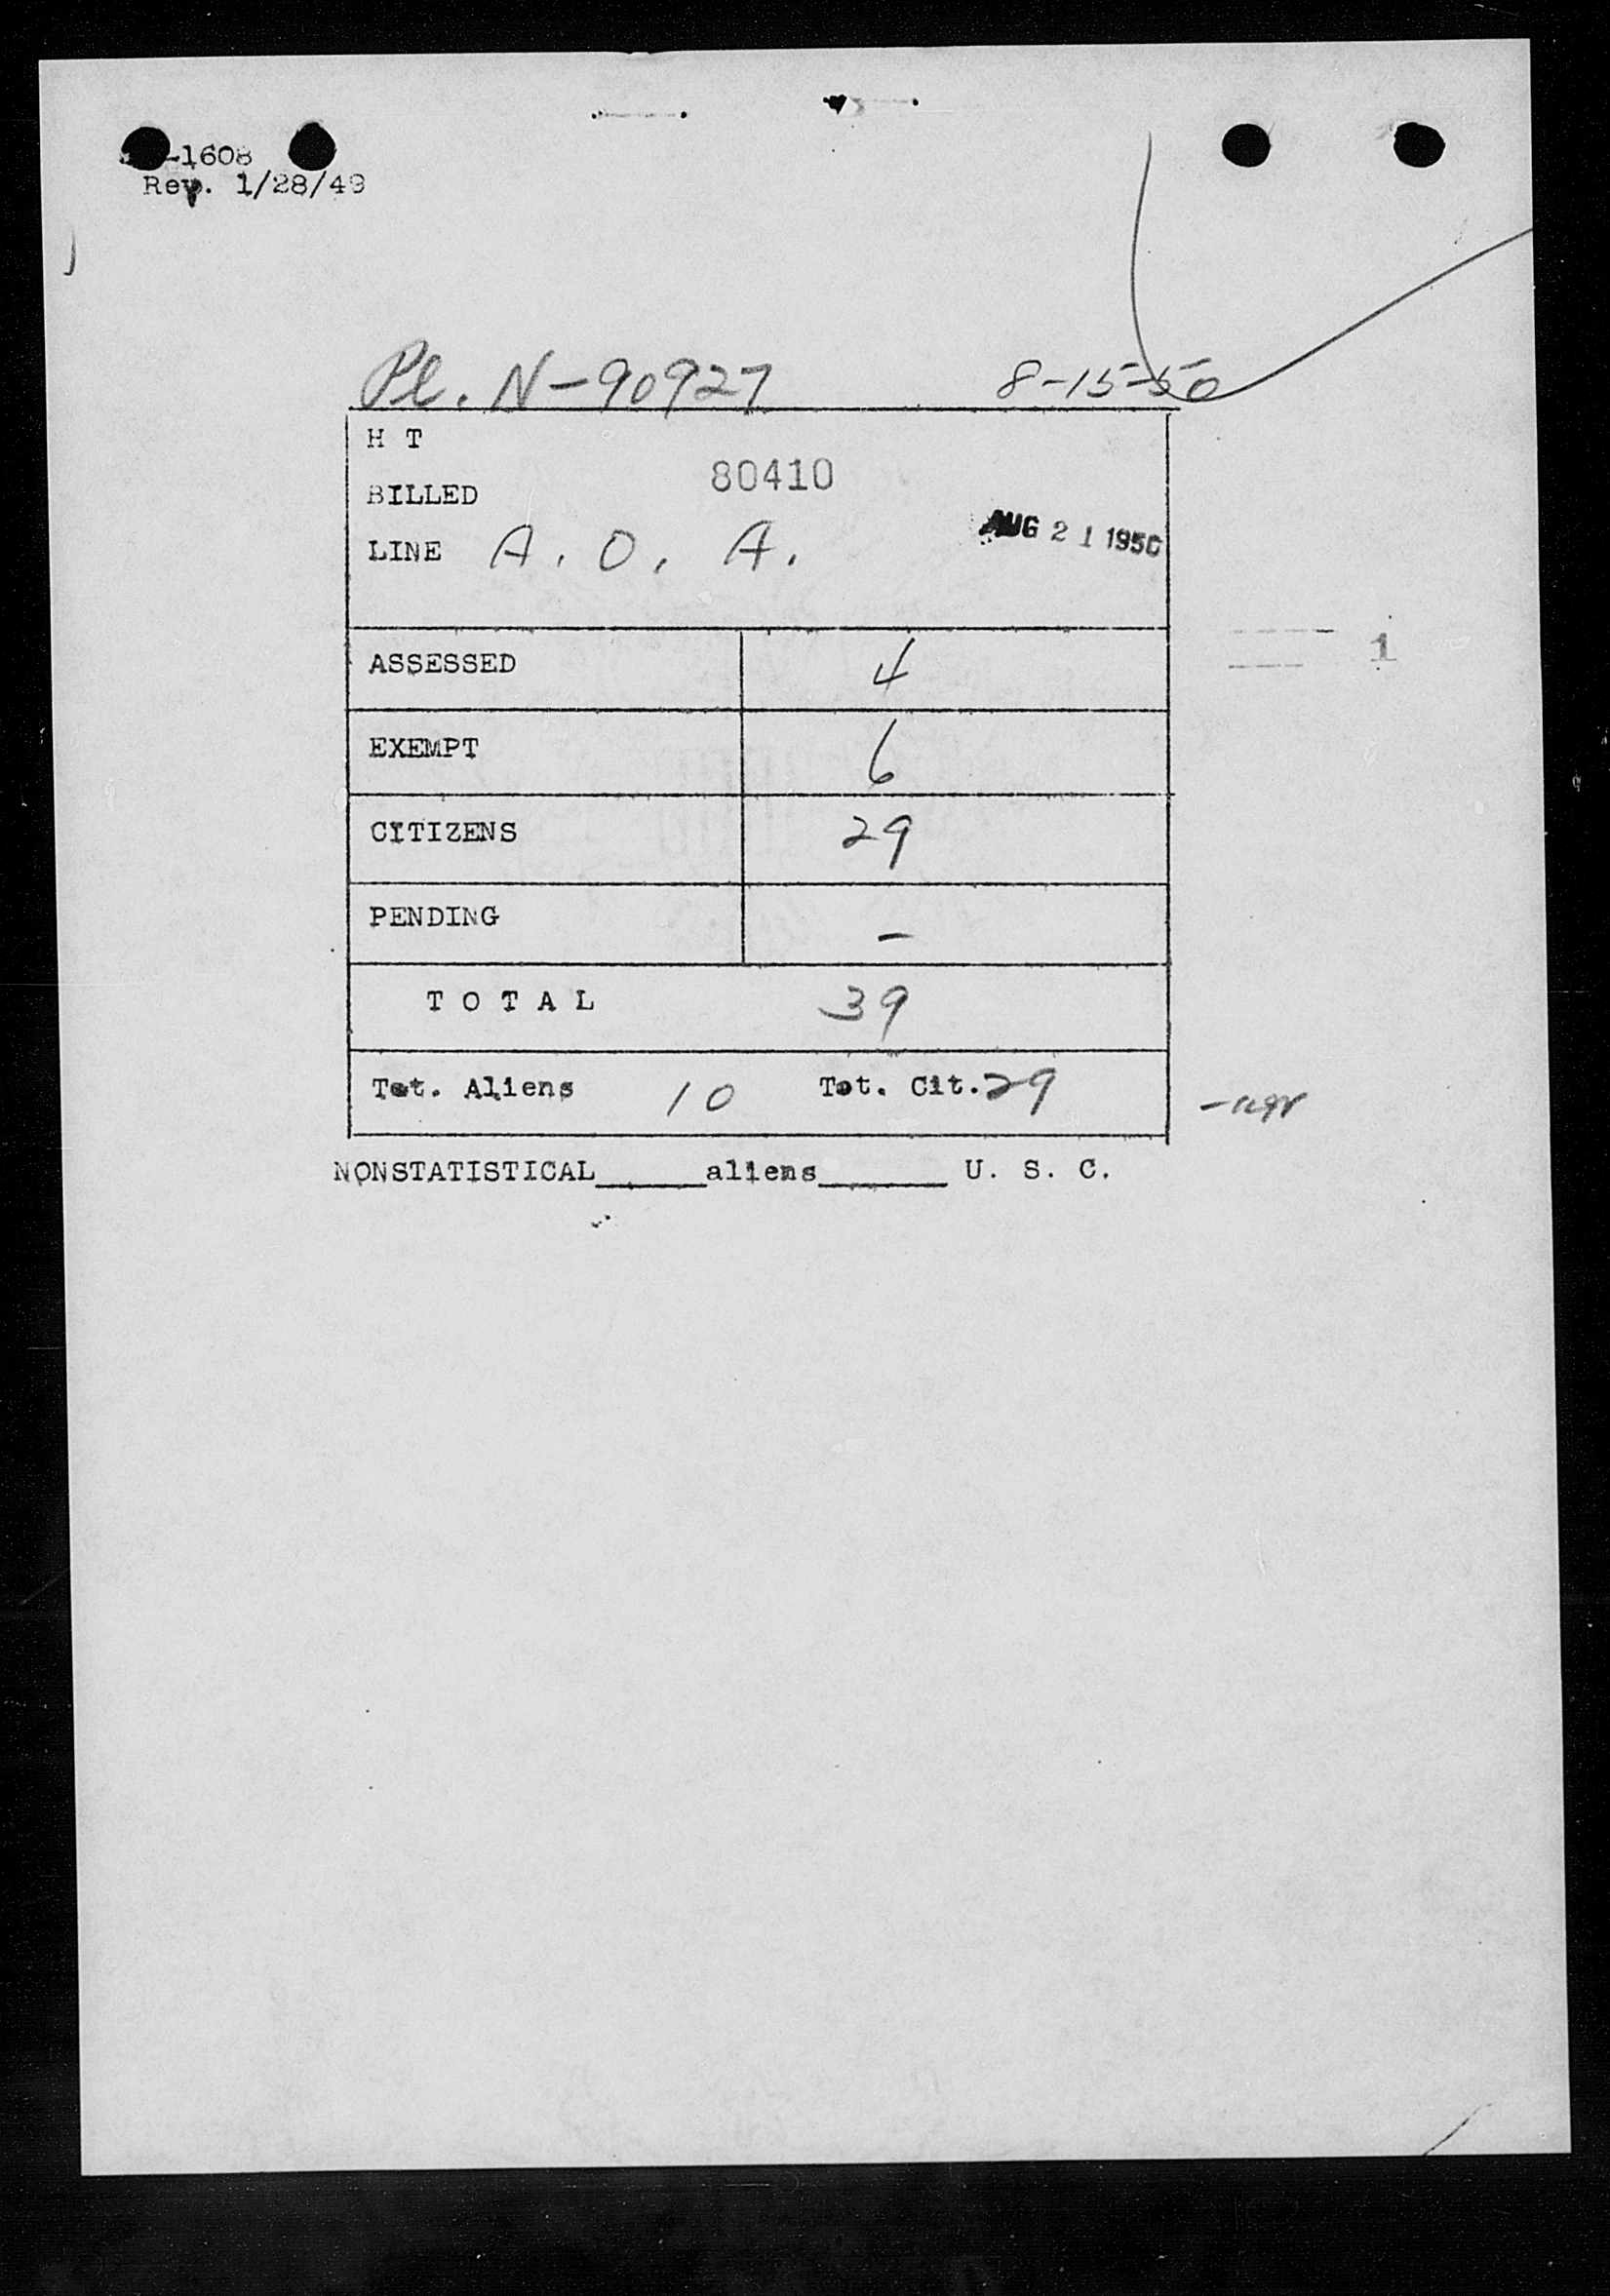 -1608
Rev. 1/28/49
Pl. N-90927 8-15-50
H T
80410
BILLED
AUG 21 1950
LINE A. O. A.
ASSESSED 4
1
EXEMPT 6
CITIZENS 29
PENDING -
T O T A L 39
Tot. Aliens 10 Tot. Cit. 29
NONSTATISTICAL_____aliens______ U. S. C.